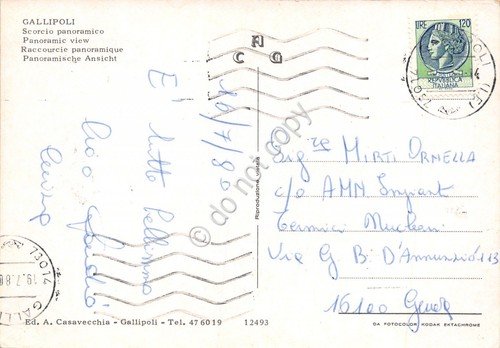 GALLIPOLI
Scorcio panoramico
Panoramic view
Raccourcie panoramique
Panoramische Ansicht
LIRE 120
REPUBBLICA
ITALIANA
73014
16/7/80
E' tutto bellissimo
Ciao
Claudia
Sig.ra MIRTI ORNELLA
c/o AMN Impiant
Termici Nucleari
Via G B D'Annunzio 113
16100 Genova
Riproduzione vietata
© do not copy
73014
19.7.80
Ed. A. Casavecchia - Gallipoli - Tel. 476019 12493
DA FOTOCOLOR KODAK EKTACHROME